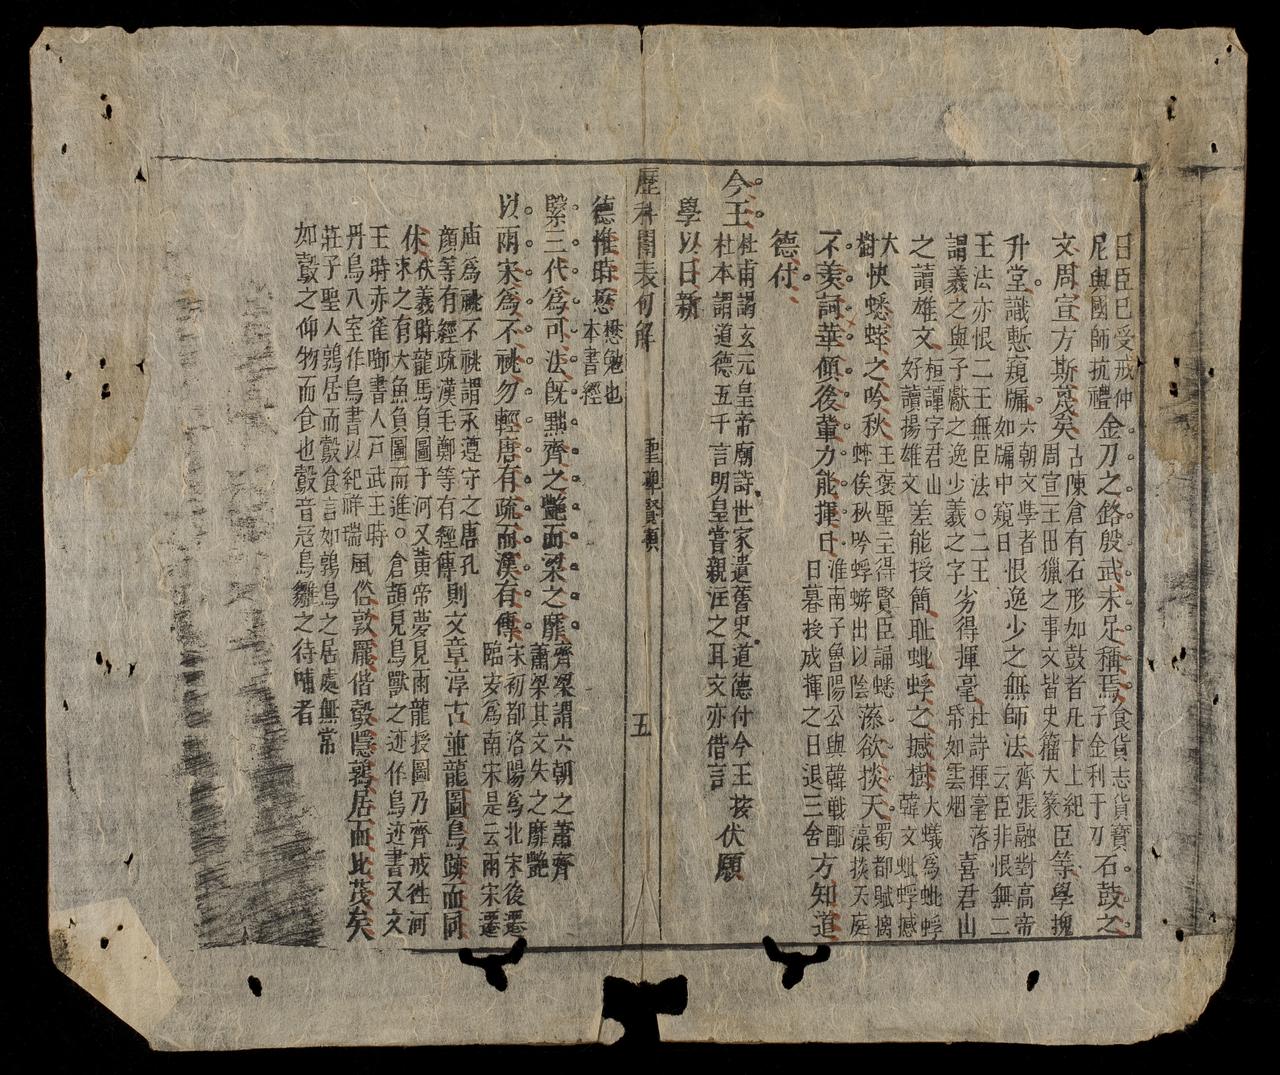 曰臣已受戒仲
尼與國師抗禮金刀之銘殷武未足稱焉食貨志貨寶
子金利于刀石鼓之
文周宣方斯蔑矣古陳倉有石形如鼓者凡十上紀
周宣王田獵之事文皆史籀大篆臣等學愧
升堂識慙窺牖六朝文學者
如牖中窺日恨逸少之無師法齊張融對高帝
云臣非恨無二
王法亦恨二王無臣法○二王
謂羲之與子獻之逸少羲之字劣得揮毫杜詩揮毫落
帋如雲烟喜君山
之讀雄文桓譚字君山
好讀揚雄文差能授簡耻蚍蜉之撼樹韓文蚍蜉撼
大蟻為蚍蜉
大
對快蟋蟀之吟秋王褒聖主得賢臣誦蟋
蟀俟秋吟蜉蝣出以陰蒸欲掞天蜀都賦摛
藻掞天庭
不羡詞華傾後輩力能揮日淮南子魯陽公與韓戰酣
日暮授戈揮之日退三舍方知道
德付
今王杜甫謁玄元皇帝廟詩世家遺舊史道德付今王按
杜本謂道德五千言明皇嘗親注之耳文亦借言伏願
學以日新
歷科開表句解 聖卑賢襄 五
德惟時懋懋勉也
本書經
繄三代為可法旣黜齊之艷而梁之靡齊梁謂六朝之蕭齊
蕭梁其文失之靡艷
以兩宋為不祧勿輕唐有疏而漢有傳宋初都洛陽為北宋後遷
臨安為南宋是云兩宋遷
庙為祧不祧謂永遵守之唐孔
顏等有經疏漢毛鄭等有經傳則文章淳古並龍圖鳥跡而同
休伏羲時龍馬負圖于河又黃帝夢見兩龍授圖乃齊戒往河
求之有大魚負圖而進○倉頡見鳥獸之迹作鳥迹書又文
王時赤雀啣書人戸武王時
丹鳥入室作鳥書以紀祥瑞風俗敦龎偕鷇隱鶉居而比茂矣
莊子聖人鶉居而鷇食言如鶉鳥之居處無常
如鷇之仰物而食也鷇音寇鳥雛之待哺者